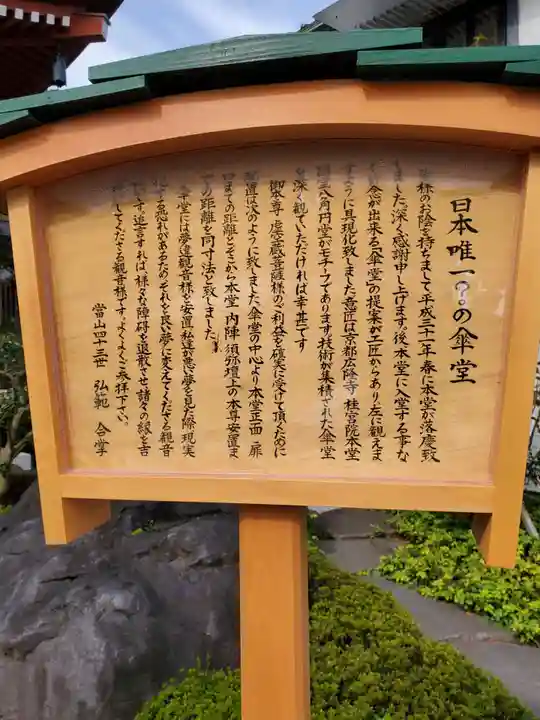 日本唯一(?)の傘堂
様のお陰を持ちまして平成三十一年春に本堂が落慶致
ました。深く感謝申し上げます。後本堂に入堂する事な
念が出来る「傘堂」の提案が工匠からあり左に観えま
ように具現化致しました意匠は京都広隆寺 桂宮院本堂
国宝八角円堂がモチーフであります技術が集積された傘堂
を深く観ていただければ幸甚です
御本尊 虚空蔵菩薩様のご利益を確実に受けて頂くために
置は次のように致しました。傘堂の中心より本堂正面 扉
までの距離とそこから本堂 内陣 須弥壇上の本尊安置ま
での距離を同寸法と致しました。
傘堂には夢違観音様を安置 私達が悪い夢を見た際現実
なる恐れがあるためそれを良い夢に変えてくださる観音
です。追言すれば、様々な障碍を退散させ、諸々の縁を吉
してくださる観音様です。よくよくご参拝下さい。
當山四十三世 弘範 合掌